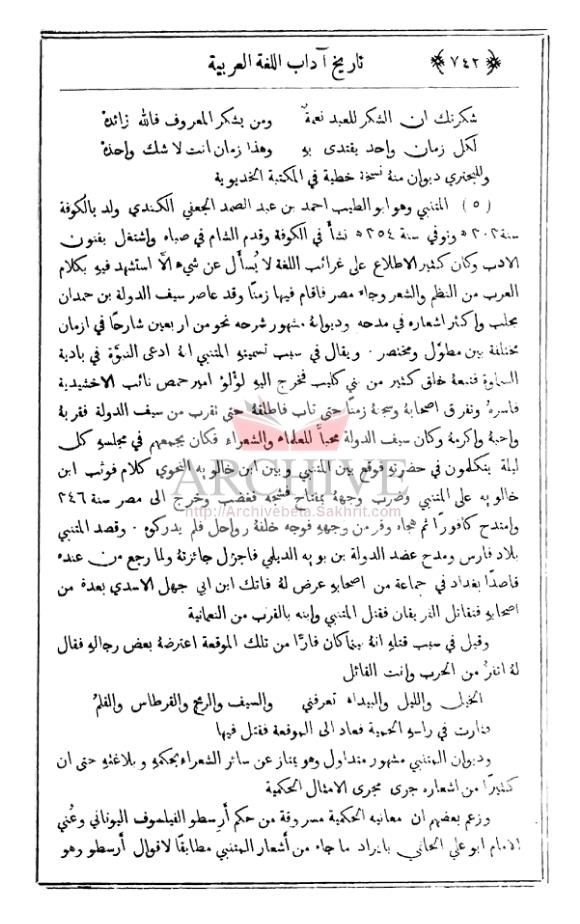 ﴿ ٧٤٢ ﴾ تاريخ آداب اللغة العربية
شكرتك ان الشكر للعبد نعمةٌ ومن يشكر المعروف فالله زائدهْ
لكل زمان واحد يقتدى بهِ وهذا زمان انت لا شك واحدهْ
وللبحتري ديوان منهُ نسخة خطية في المكتبة الخديوية
( ٥ ) المتنبي وهو ابو الطيب احمد بن عبد الصمد الجعفي الكندي ولد بالكوفة
سنة ٢٠٢ ه وتوفي سنة ٢٥٤ ه نشأ في الكوفة وقدم الشام في صباه واشتغل بفنون
الادب وكان كثير الاطلاع على غرائب اللغة لا يُسأل عن شيءٍ الَّا استشهد فيهِ بكلام
العرب من النظم والشعر وجاء مصر فاقام فيها زمنًا وقد عاصر سيف الدولة بن حمدان
بحلب واكثر اشعاره في مدحه وديوانهُ مشهور شرحه نحو من اربعين شارحًا في ازمان
مختلفة بين مطوّل ومختصر . ويقال في سبب تسميتهِ المتنبي انهُ ادعى النبوَّة في بادية
السماوة فتبعهُ خلق كثير من بني كليب فخرج اليهِ لؤلؤ امير حمص نائب الاخشيدية
فاسرهُ وتفرق اصحابهُ وسجنهُ زمنًا حتى تاب فاطلقهُ حتى تقرب من سيف الدولة فقربهُ
واحبهُ واكرمهُ وكان سيف الدولة محبًّا للعلماء والشعراء فكان يجمعهم في مجلسهِ كل
ليلة يتكلمون في حضرتهِ فوقع بين المتنبي وبين ابن خالويه النحوي كلام فوثب ابن
خالويه على المتنبي وضرب وجههُ بمفتاح فشجهُ فغضب وخرج الى مصر سنة ٢٤٦
وامتدح كافورًا ثم هجاه وفر من وجههِ فوجه خلفهُ رواحل فلم يدركوه . وقصد المتنبي
بلاد فارس ومدح عضد الدولة بن بويه الديلمي فاجزل جائزتهُ ولما رجع من عنده
قاصدًا بغداد في جماعة من اصحابهِ عرض لهُ فاتك ابن ابي جهل الاسدي بعدة من
اصحابهِ فتقاتل الفريقان فقتل المتنبي وابنه بالقرب من النعمانية
وقيل في سبب قتلهِ انهُ بينما كان فارًّا من تلك الموقعة اعترضهُ بعض رجالهِ فقال
لهُ اتفرُّ من الحرب وانت القائل
الخيل والليل والبيداء تعرفني والسيف والرمح والقرطاس والقلمُ
فثارت في راسهِ الحمية فعاد الى الموقعة فقتل فيها
وديوان المتنبي مشهور متداول وهو يمتاز عن سائر الشعراء بحكمهِ وبلاغتهِ حتى ان
كثيرًا من اشعاره جرى مجرى الامثال الحكمية
وزعم بعضهم ان معانيه الحكمية مسروقة من حكم أرسطو الفيلسوف اليوناني وعُني
الامام ابو علي الحاتمي بايراد ما جاء من أشعار المتنبي مطابقًا لاقوال أرسطو وهو
ARCHIVE
http://Archivebeta.Sakhrit.com